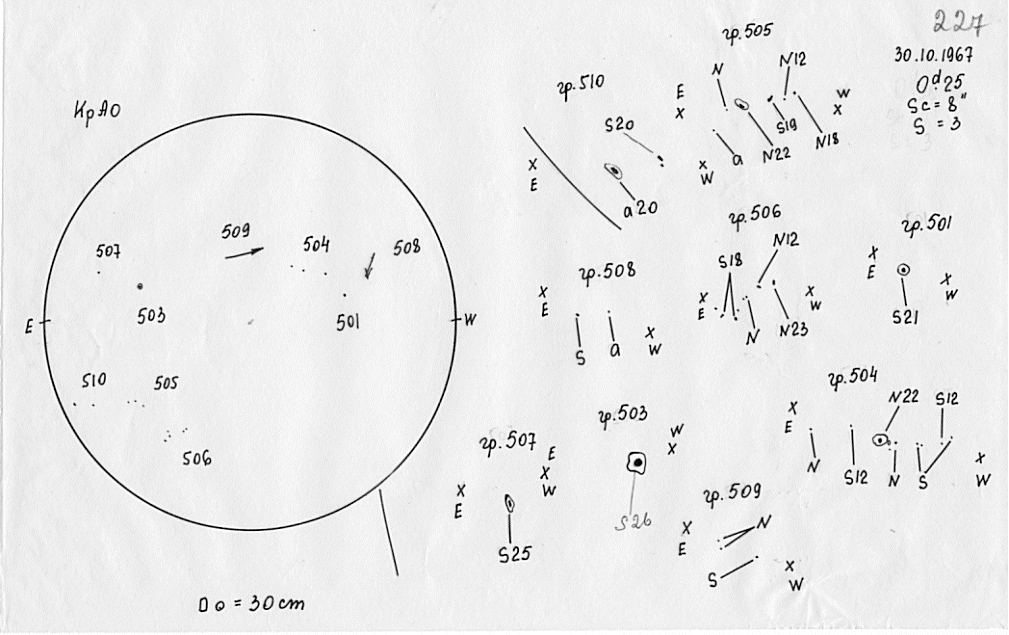 227
30.10.1967
0ᵈ.25
Sc = 8"
S = 3
КрАО
507
509
504
508
503
501
E
W
510
505
506
D⊙ = 30 cm
гр.510
S20
X
E
X
W
a20
гр.505
N
N12
E
X
W
X
S19
a
N22
N18
гр.508
X
E
X
W
S
a
гр.506
S18
N12
X
E
X
W
N
N23
гр.501
X
E
X
W
S21
гр.504
N22
S12
X
E
X
W
N
S12
N
S
гр.507
E
X
W
X
E
S25
гр.503
W
X
S26
гр.509
N
X
E
X
W
S